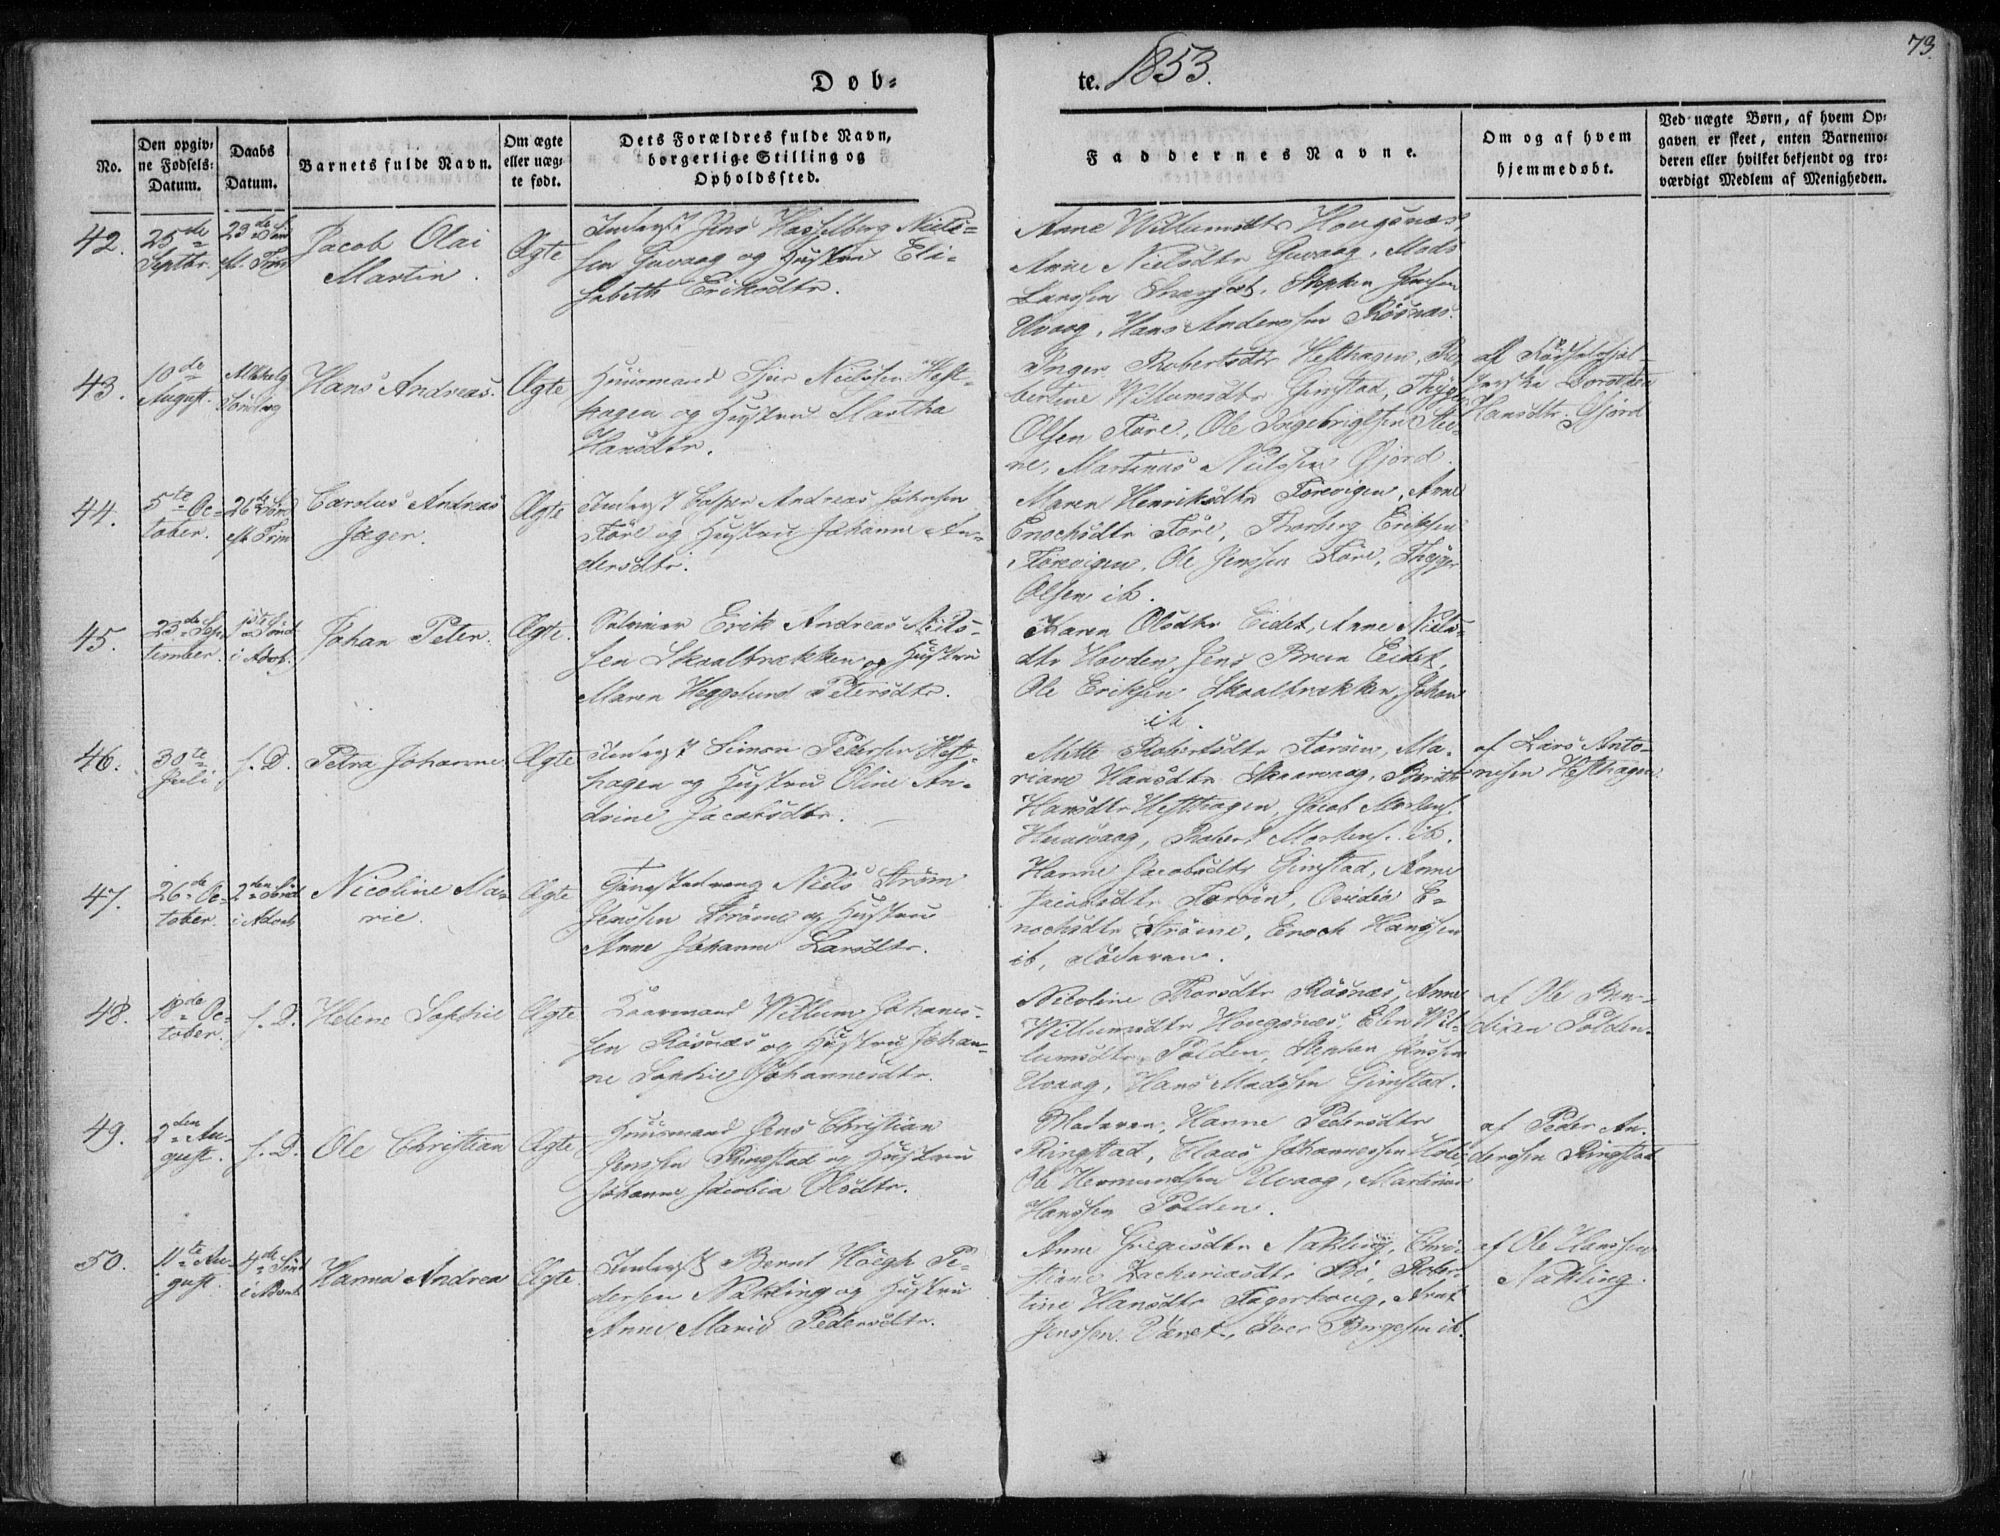 73.
Døb-
te. 1853.
No.
Den opgiv-
ne Fødsels-
Datum.
Daabs
Datum.
Barnets fulde Navn.
Om ægte
eller uæg-
te født.
Dets Forældres fulde Navn,
borgerlige Stilling og
Opholdssted.
Faddernes Navne.
Om og af hvem
hjemmedøbt.
Ved uægte Børn, af hvem Op-
gaven er skeet, enten Barnemo-
deren eller hvilket bekjendt og tro-
værdigt Medlem af Menigheden.
42.
25de
Septbr.
23de Sønd
eft. Trin
Jacob Olai
Martin.
Ægte
Inderst Jens Hasselberg Niels-
sen Guvaag og Hustru Eli-
sabeth Eriksdtr.
Anne Willumsdtr Hougsnæs,
Anne Nielsdtr Guvaag, Mads
Larssen, Stephen Jenssen
Uvaag, Hans Anderssen Røsnæs.
43.
10de
August.
Allehelg
Søndag
Hans Andreas.
Ægte
Huusmand Nielssen Heft-
hagen og Hustru Martha
Hansdtr.
Inger Robertsdtr Hefthagen, Ro-
bertine Willumsdtr Gimstad, Thøger
Olsen Føre, Ole Ingebrigtsen Stee-
ne, Martinus Nielssen Gjørd.
af Fødselshjæl-
perske Dorothea
Hansdtr. Gjørd
44.
5te Oc-
tober.
26de Sønd
eft. Trin
Carolus Andreas
Jæger.
Ægte
Inderst Casper Andreas Johnsen
Føre og Hustru Johanne An-
dersdtr.
Maren Henriksdtr Førevigen, Anne
Enochsdtr Føre, Thorberg Eriksen
Førevigen, Ole Jenssen Føre, Thøger
Olsen ib.
45.
23de Sep-
tember.
1ste Sønd
i Advb.
Johan Peter.
Ægte.
Erik Andreas Niels-
sen Skaalbrækken og Hustru
Maren Heggelund Petersdtr.
Karen Olsdtr Eidet, Anne Niels-
dtr Hovden, Jens Bruun Eidet,
Ole Eriksen Skaalbrækken, Johan
ib.
46.
30te
Juli
s. D.
Petra Johanne
Ægte
Inderst Simon Pedersen Heft-
hagen og Hustru Oline An-
drine Jacobsdtr.
Mette Robertsdtr Førøen, Ma-
riane Hansdtr Skaarvaag, Berith
Hansdtr Hefthagen, Jacob Mortens.
Hunsvaag, Robert Mortens. ib.
af Lars Anto-
niesen Hefthagen
47.
26de Oc-
tober.
2den Sønd
i Advb
Nicoline Ma-
rie.
Ægte
Niels Strøm
Jenssen Strømme og Hustru
Anne Johanne Larsdtr.
Hanne Jacobsdtr Gimstad, Anne
Jacobsdtr Førøen, Ovidia E-
nochsdtr Strømme, Enoch Hanssen
ib, Faderen.
48.
18de Oc-
tober.
s. D.
Helene Sophie
Ægte
Gaardmand Willum Johannes-
sen Røsnæs og Hustru Johan-
ne Sophie Johannesdtr.
Nicoline Thorsdtr Røsnæs, Anne
Willumsdtr Hougsnæs, Elen Wil-
lumsdtr Polden, Stephen Jenssen
Uvaag, Hans Madssen Gimstad.
af Ole Ben-
dixen Polden
49.
2den Au-
gust.
s. D.
Ole Christian
Ægte
Huusmand Jens Christian
Jenssen Ringstad og Hustru
Johanne Jacobia Olsdtr.
Moderen, Hanne Pedersdtr
Ringstad, Claus Johannessen Hole,
Ole Hermundsen Uvaag, Martinus
Hanssen Polden.
af Peder An-
derssen Ringstad
50.
11te Au-
gust.
4de Sønd
i Advb
Hanna Andrea
Ægte
Inderst Bernt Høegh Pe-
dersen Nakling og Hustru
Anne Marie Pedersdtr.
Anne Nakling, Chri-
stiane Zachariasdtr Bø, Rober-
tine Hansdtr Fagerhoug, Arnt
Jenssen, Iver Borgesen ib.
af Ole Hanssen
Nakling.